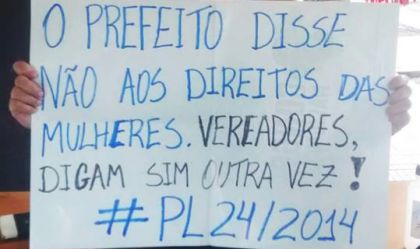 O PREFEITO DISSE
NÃO AOS DIREITOS DAS
MULHERES. VEREADORES,
DIGAM SIM OUTRA VEZ!
#PL24/2014